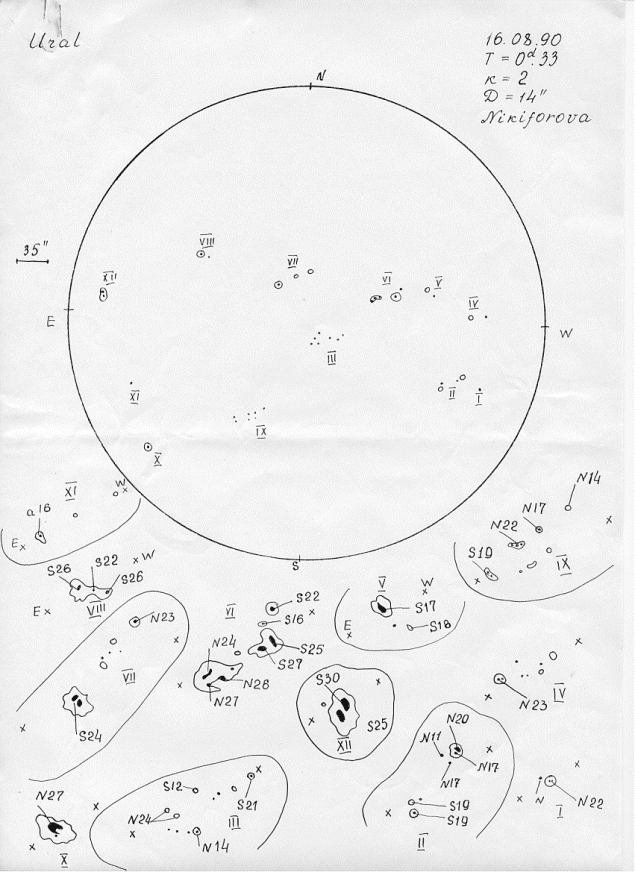 Ural
16.08.90
T = 0ᵈ.33
к = 2
D = 14"
Nikiforova
N
35"
VIII
VII
XII
VI
V
IV
E
W
III
XI
II
I
IX
X
S
XI
W
a16
E
N14
N17
N22
S19
IX
S26
S22
S26
W
E
VIII
N23
VII
S24
VI
S22
S16
S25
S27
N24
N28
N27
V
W
S17
S18
E
N23
IV
S30
S25
XII
N20
N11
N17
N17
S19
S19
II
N
N22
I
N27
X
S12
S21
N24
III
N14